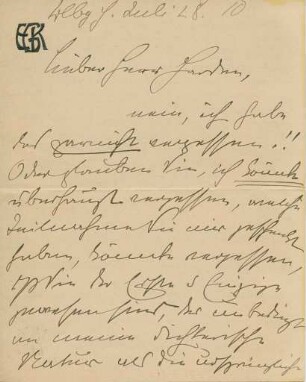 Lieber Herr Harden,
nein, ich habe
das garnicht vergessen!!
Oder glauben Sie, ich könnte
überhaupt vergessen, welche
Teilnahme Sie mir geschenkt
haben, könnte vergessen,
daß Sie der Erste u Einzige
gewesen sind, der unbedingt
an meine dichterische
Natur als die ursprüngliche